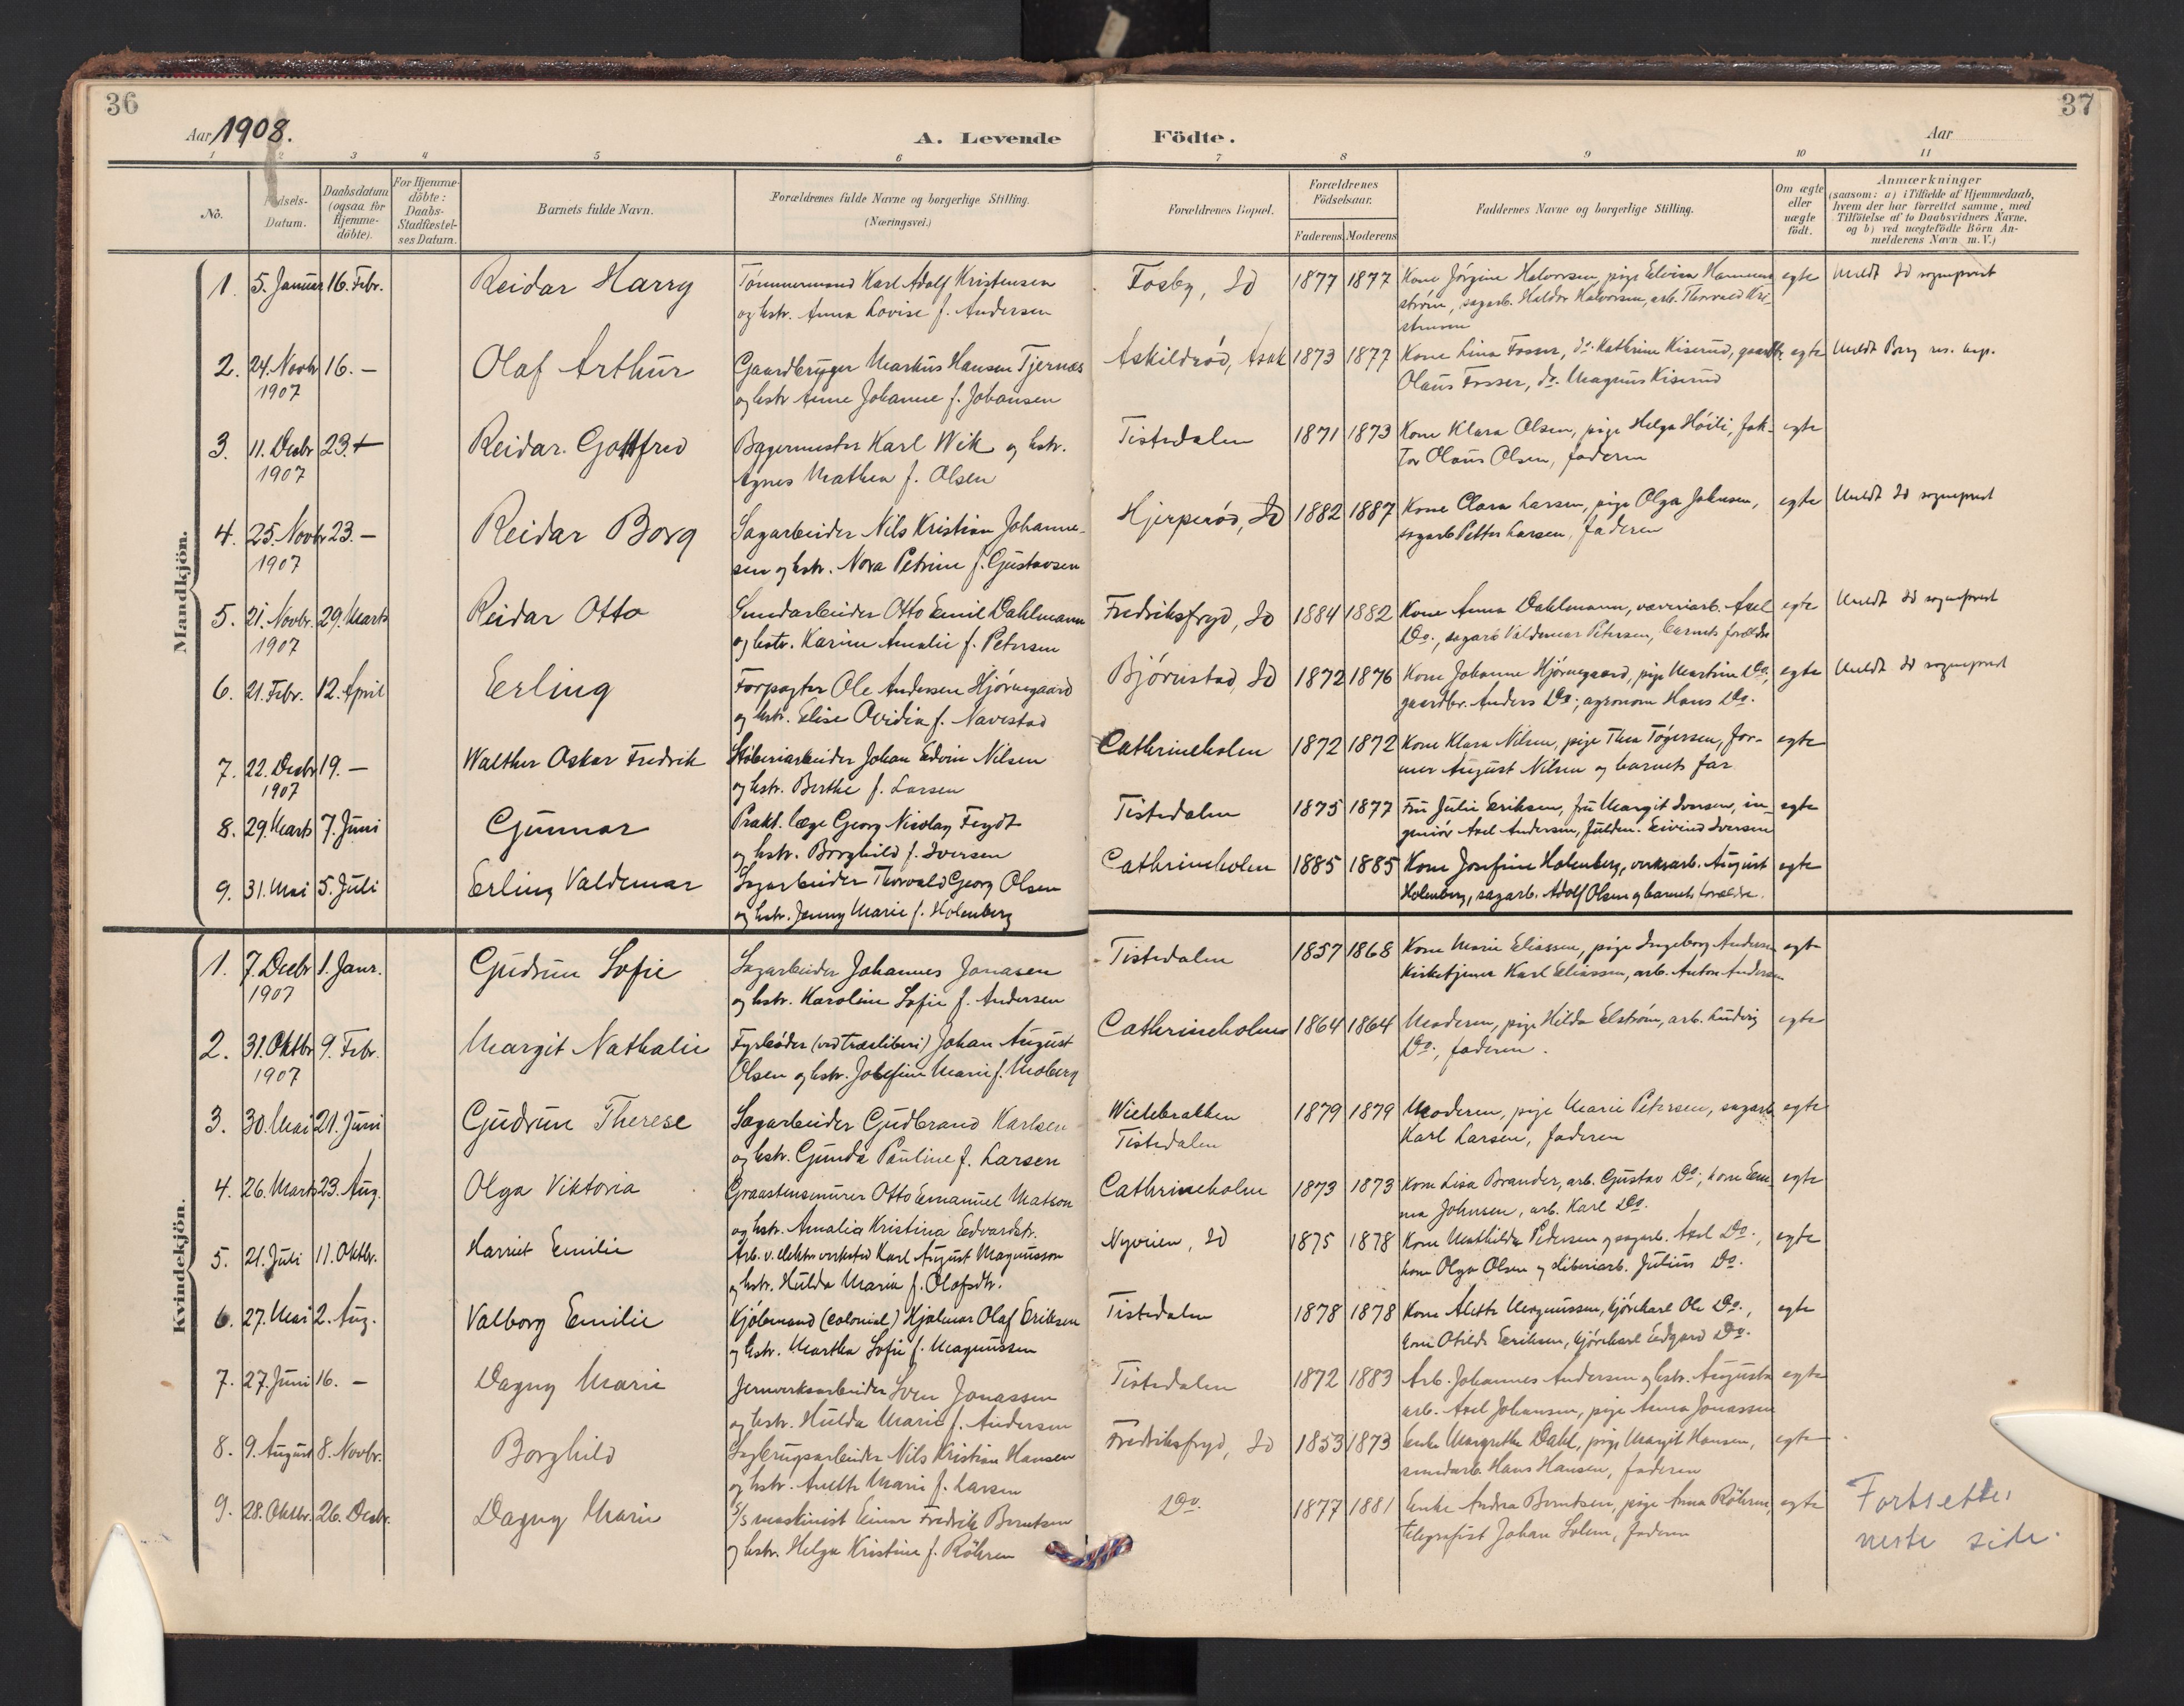 36
37
Aar 1908.
A. Levende Födte.
Aar
1 2 3 4 5 6 7 8 9 10 11
No.
Fødsels-
Datum.
Daabsdatum
(ogsaa for
Hjemme-
döbte).
For Hjemme-
döbte:
Daabs-
Stadfæstel-
ses Datum.
Barnets fulde Navn.
Forældrenes fulde Navne og borgerlige Stilling.
(Næringsvei.)
Forældrenes Bopæl.
Forældrenes
Födselsaar.
Faderens Moderens
Faddernes Navne og borgerlige Stilling.
Om ægte
eller
uægte
födt.
Anmærkninger
(saasom: a) i Tilfælde af Hjemmedaab,
hvem der har forrettet samme, med
Tilföielse af to Daabsvidners Navne,
og b) ved uægtefödte Börn An-
melderens Navn m. V.)
Mandkjön.
1. 5. Januar 16. Febr. Reidar Harry Tømmermand Karl Adolf Kristensen Fosby, Id 1877 1877 Kone Jörgine Halvorsen, pige Elvisa Hammer- egte Meldt Id sogneprest
og hstr. Anna Lovise f. Andersen ström, sagarb. Haldor Halvorsen, arb. Thorvald Kri-
stensen
2. 24. Novbr 16. — Olaf Arthur Gaardbruger Markus Hansen Tjernæs Askildröd, Asak 1873 1877 Kone Lina Fosser, do. Kathrine Kiserud, gaardbr. egte Meldt Berg res. kap.
1907 og hstr Anne Johanne f. Johansen Olaus Fosser, do. Magnus Kiserud
3. 11. Decbr 23. — Reidar Gottfred Bagermester Karl Wik og hstr. Tistedalen 1871 1873 Kone Klara Olsen, pige Helga Höili, fak- egte
1907 Agnes Mathea f. Olsen tor Olaus Olsen, faderen
4. 25. Novbr 23. — Reidar Borg Sagarbeider Nils Kristian Johanne- Hjerperöd, Id 1882 1887 Kone Clara Larsen, pige Olga Johnsen, egte Meldt Id sogneprest
1907 sen og hstr. Nora Petrine f. Gustavsen sagarb Petter Larsen, faderen
5. 21. Novbr. 29. Marts Reidar Otto Smedarbeider Otto Emil Dahlmann Fredriksfryd, Id 1884 1882 Kone Anna Dahlmann, væveriarb. Axel egte Meldt Id sogneprest
1907 og hstr. Karine Amalie f. Petersen Do., sagarb Valdemar Petersen, barnets forældre
6. 21. Febr. 12. April Erling Forpagter Ole Andersen Hjörnegaard Björnstad, Id 1872 1876 Kone Johanne Hjörnegaard, pige Martine Do, egte Meldt Id sogneprest
og hstr. Elise Ovidia f. Navestad gaardbr. Anders Do; agronom Hans Do.
7. 22. Decbr 19. — Walther Oskar Fredrik Støberiarbeider Johan Edvin Nilsen Cathrineholm 1872 1872 Kone Klara Nilsen, pige Thea Tögersen, for- egte
1907 og hstr. Berthe f. Larsen mer August Nilsen og barnets far
8. 29. Marts 7. Juni Gunnar Prakt. læge Georg Nicolay Feydt Tistedalen 1875 1877 Fru Julie Eriksen, fru Margit Iversen, in- egte
og hstr. Borghild f. Iversen geniör Axel Andersen, fuldm. Eivind Iversen
9. 31. Mai 5. Juli Erling Valdemar Sagarbeider Thorvald Georg Olsen Cathrineholm 1885 1885 Kone Josefine Holenberg, verksarb. August egte
og hstr. Jenny Marie f. Holenberg Holenberg, sagarb. Adolf Olsen og barnets forældre.
Kvindekjön.
1. 7. Decbr 1. Janr. Gudrun Sofie Sagarbeider Johannes Jonasen Tistedalen 1857 1868 Kone Marie Eliassen, pige Ingeborg Andersen egte
1907 og hstr. Karoline Sofie f. Andersen Kirketjener Karl Eliassen, arb. Anton Andersen
2. 31. Oktbr 9. Febr. Margit Nathalie Fyrböder (ved træsliberi) Johan August Cathrineholm 1864 1864 Moderen, pige Hilda Elström, arb. Ludvig egte
1907 Olsen og hstr. Josefine Marie f. Moberg Do., faderen.
3. 30. Mai 21. Juni Gudrun Therese Sagarbeider Gudbrand Karlsen Wielebakken 1879 1879 Moderen, pige Marie Petersen, sagarb. egte
og hstr. Gunda Pauline f. Larsen Tistedalen Karl Larsen, faderen
4. 26. Marts 23. Aug. Olga Viktoria Graastensmurer Otto Emanuel Matson Cathrineholm 1873 1873 Kone Lisa Brander, arb. Gustav Do; kone Em- egte
og hstr. Amalia Kristina Edvardstr. ma Johnsen, arb. Karl Do.
5. 21. Juli 11. Oktbr. Harriet Emilie Arb. v. elektr. verksted Karl August Magnusson Nyveien, Id 1875 1878 Kone Mathilde Pedersen og sagarb. Axel Do., egte
og hstr. Hulda Maria f. Olofsdtr. kone Olga Olsen og sliberiarb. Julius Do.
6. 27. Mai 2. Aug. Valborg Emilie Kjöbmand (colonial) Hjalmar Olaf Eriksen Tistedalen 1878 1878 Kone Alette Magnussen, kjörekarl Ole Do., egte
og hstr. Martha Sofie f. Magnussen kone Otilde Eriksen, kjörekarl Edgard Do.
7. 27. Juni 16. — Dagny Marie Jernverksarbeider Sven Jonassen Tistedalen 1872 1883 Arb. Johannes Andersen og hstr. Augusta egte
og hstr. Hulda Marie f. Andersen arb. Axel Johansen, pige Anna Jonassen
8. 9. August 8. Novbr. Borghild Sagbrugsarbeider Nils Kristian Hansen Fredriksfryd, Id 1853 1873 Enke Margrethe Dahl, pige Margit Hansen, egte
og hstr. Anette Marie f. Larsen smedarb. Hans Hansen, faderen
9. 28. Oktbr. 26. Decbr. Dagny Marie S/s maskinist Einar Fredrik Berntsen Do. 1877 1881 Enke Andrea Berntsen, pige Anna Röhren, egte
og hstr. Helga Kristine f. Röhren telegrafist Johan Solem, faderen
Fortsettes
neste side.